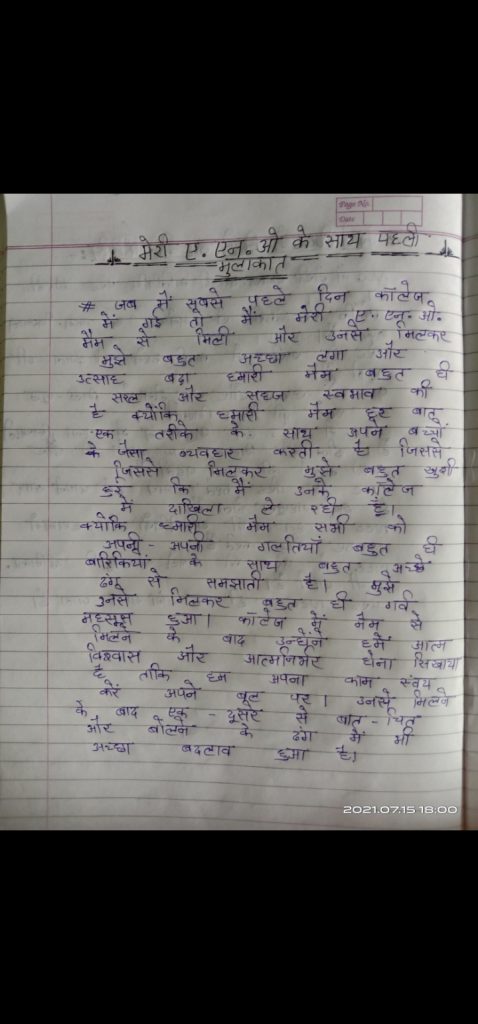 Page No.
Date
मेरी ए. एन. ओ के साथ पहली
मुलाकात
# जब मैं सबसे पहले दिन कॉलेज
में गई तो मैं मेरी ए. एन. ओ.
मैम से मिली और उनसे मिलकर
मुझे बहुत अच्छा लगा और
उत्साह बढ़ा हमारी मैम बहुत ही
सरल और सहज स्वभाव की
है क्योंकि हमारी मैम हर बात
एक तरीके के साथ अपने बच्चों
के जैसा व्यवहार करती है जिससे
जिससे मिलकर मुझे बहुत खुशी
हुई कि मैं उनके कॉलेज
में दाखिला ले रही हूँ।
क्योंकि हमारी मैम सभी को
अपनी-अपनी गलतियाँ बहुत ही
बारिकियों के साथ बहुत अच्छे
ढंग से समझाती है। मुझे
उनसे मिलकर बहुत ही गर्व
महसूस हुआ। कॉलेज में मैम से
मिलने के बाद उन्होंने हमें आत्म
विश्वास और आत्मनिर्भर होना सिखाया
है ताकि हम अपना काम स्वंय
करें अपने बूते पर। उनसे मिलने
के बाद एक-दूसरे से बात-चित
और बोलने के ढंग में भी
अच्छा बदलाव हुआ है।
2021.07.15 18:00